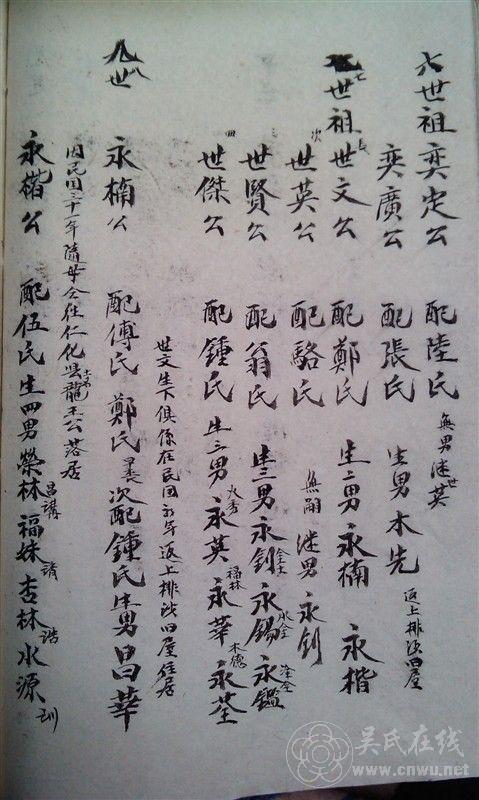 六世祖奕定公 配陸氏 無男 継世英
奕廣公 配張氏 生男木先 返上排沙四屋
七世祖 長 世文公 配鄭氏 生二男 永楠 永楷
次 世英公 配駱氏 無嗣 継男永釗
世賢公 配翁氏 生三男 永釗 永錫 水全 永鑑
四 世傑公 配鍾氏 生三男 永英 福林 永華 木德 永荃
世文生下俱係在民国 年返上排沙四屋住居
八世 永楠公 配傅氏 鄭氏 次配鍾氏 生男昌華
因民国三十一年隨母仝往仁化 土名 龍王公落居
永楷公 配伍氏 生四男 榮林 昌講 福妹 請 杏林 誥 水源 訓
吴氏在线
www.cnwu.net